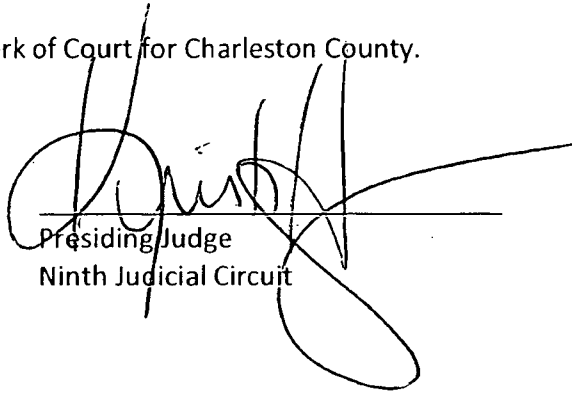 rk of Court for Charleston County.
Presiding Judge
Ninth Judicial Circuit